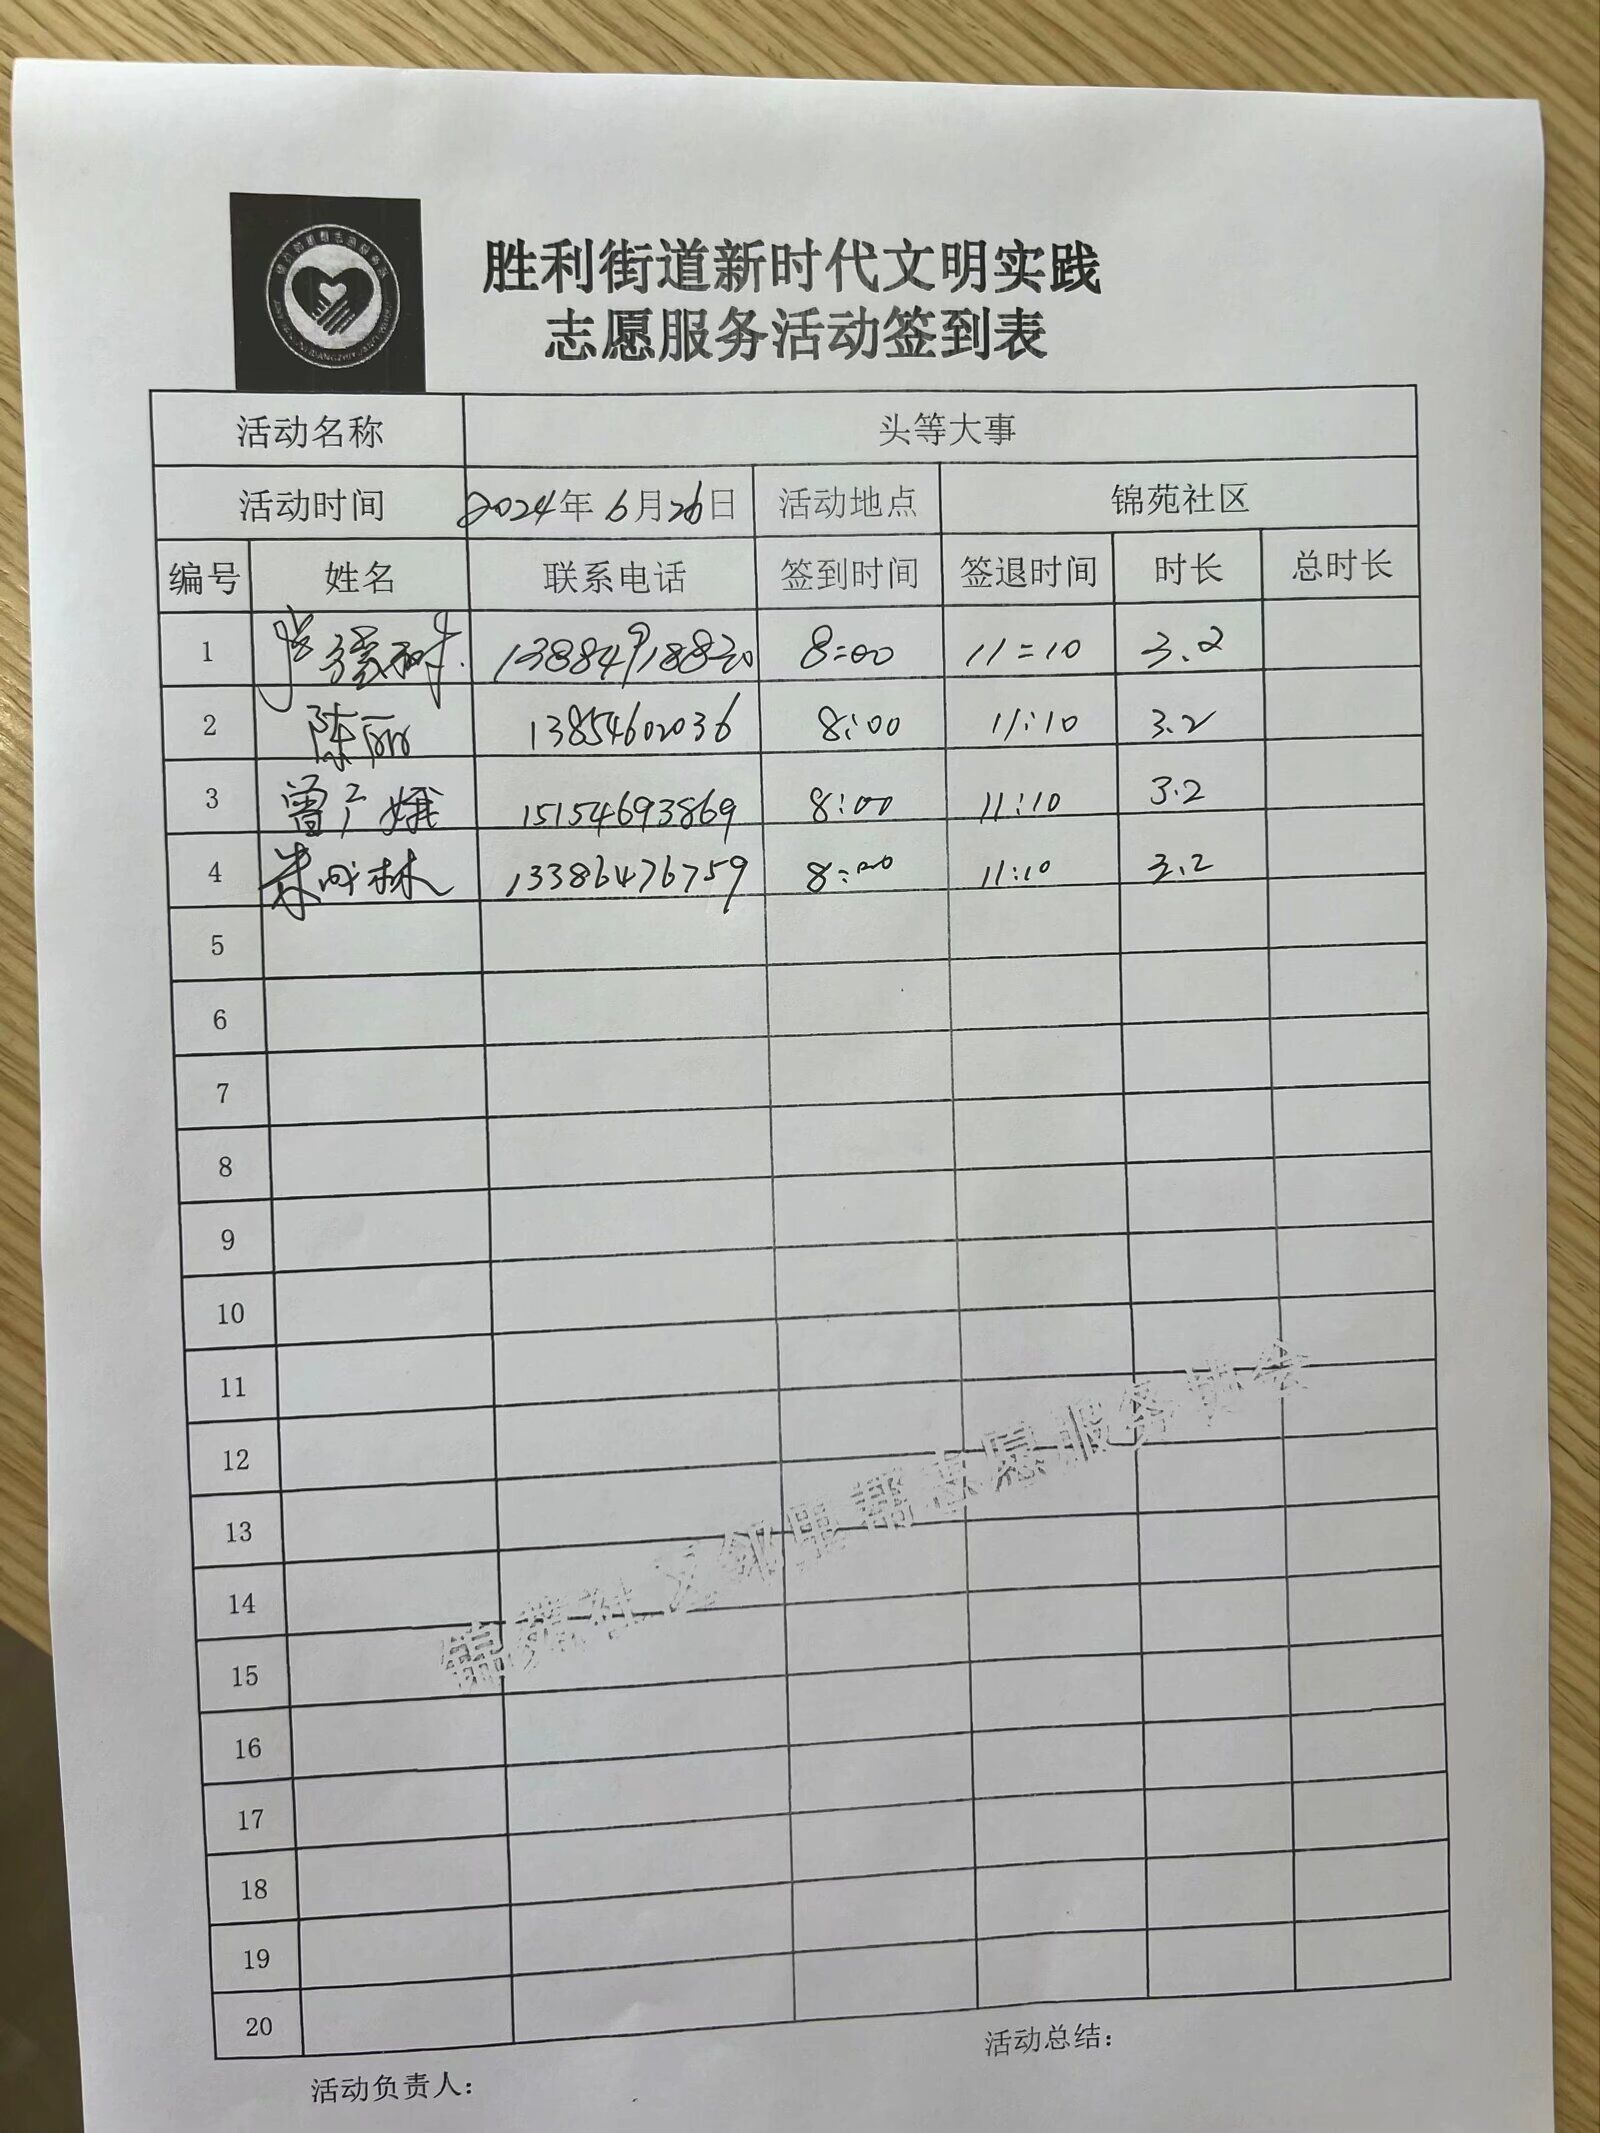 胜利街道新时代文明实践
志愿服务活动签到表
活动名称 头等大事
活动时间 2024年6月26日 活动地点 锦苑社区
编号 姓名 联系电话 签到时间 签退时间 时长 总时长
1 13884918820 8:00 11:10 3.2
2 陈丽 13854602036 8:00 11:10 3.2
3 曾广娥 15154693869 8:00 11:10 3.2
4 林 13386476759 8:00 11:10 3.2
5
6
7
8
9
10
11
12
13
14
15
16
17
18
19
20
锦苑社区邻里帮志愿服务协会
活动负责人： 活动总结：